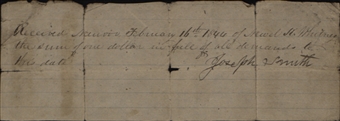 Received Nauvoo February 16th 1844 of Newel K. Whitney
the sum of one dollar in full of all demands to
this date
Joseph Smith